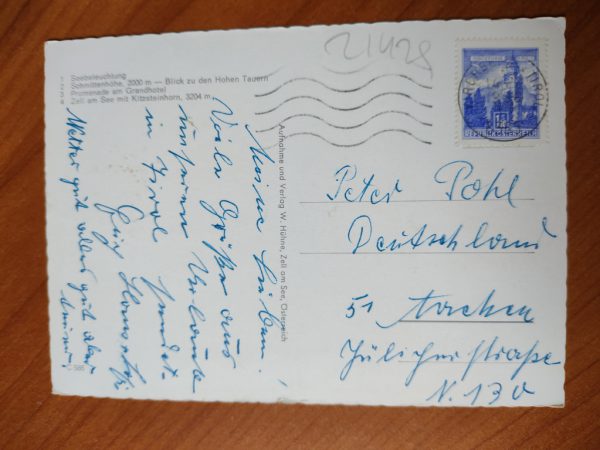 1 Seebeleuchtung
2 Schmittenhöhe, 2000 m — Blick zu den Hohen Tauern
3 Promenade am Grandhotel
4 Zell am See mit Kitzsteinhorn, 3204 m
Meine Lieben!
Viele Grüße aus
unserem Urlaub
in Tirol sendet
Wetter gut alles gut aber
C 585
Aufnahme und Verlag W. Hühne, Zell am See, Österreich
21428
Peter Pohl
Deutschland
51 Aachen
Jülicherstraße
N. 130